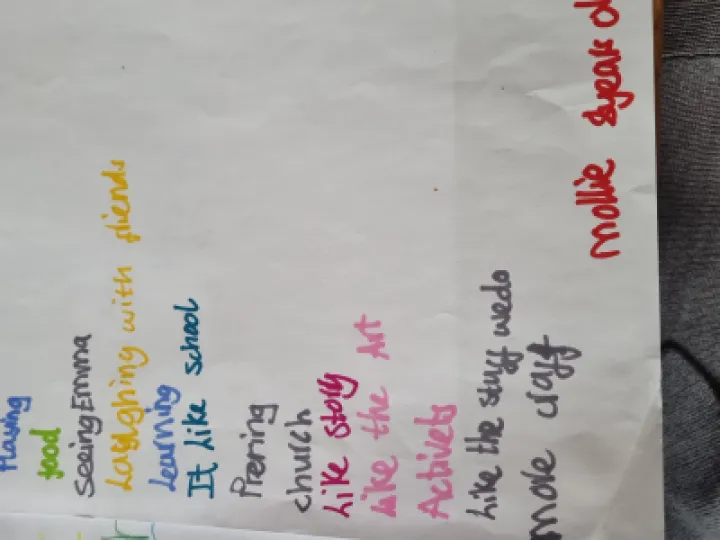 Playing
food
Seeing Emma
Laughing with friends
Learning
It Like school
Prering
church
Like story
Like the Art
Activets
Like the stuff wedo
more craff
mollie speak